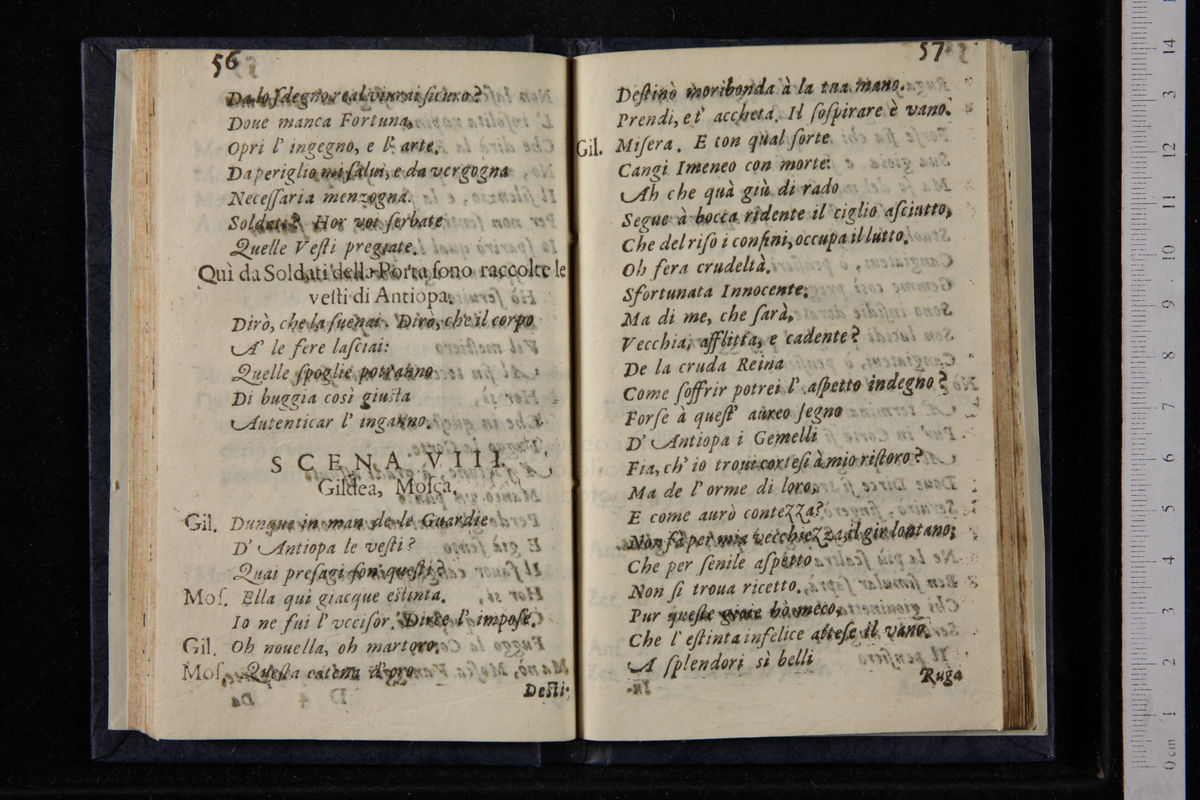 56
Da lo sdegno real viurai sicuro?
Doue manca Fortuna,
Opri l' ingegno, e l' arte.
Da periglio mi salui, e da vergogna
Necessaria menzogna.
Soldati? Hor voi serbate
Quelle Vesti pregiate.
Quì da Soldati della Porta sono raccolte le
vesti di Antiopa.
Dirò, che la suenai. Dirò, che il corpo
A' le fere lasciai:
Quelle spoglie potranno
Di buggia così giusta
Autenticar l' inganno.
SCENA VIII.
Gildea, Mosca.
Gil. Dunque in man de le Guardie
D' Antiopa le vesti?
Quai presagi son' questi?
Mos. Ella quì giacque estinta.
Io ne fui l' vccisor. Dirce l' impose.
Gil. Oh nouella, oh martoro.
Mos. Questa catena d'oro
Desti-
57
Destinò moribonda à la tua mano.
Prendi, e t' accheta. Il sospirare è vano.
Gil. Misera. E con qual sorte
Cangi Imeneo con morte:
Ah che quà giù di rado
Segue à bocca ridente il ciglio asciutto,
Che del riso i confini, occupa il lutto.
Oh fera crudeltà.
Sfortunata Innocente.
Ma di me, che sarà,
Vecchia, afflitta, e cadente?
De la cruda Reina
Come soffrir potrei l' aspetto indegno?
Forse à quest' aureo segno
D' Antiopa i Gemelli
Fia, ch' io troui cortesi à mio ristoro?
Ma de l' orme di loro,
E come aurò contezza?
Non fà per mia vecchiezza, il gir lontano;
Che per senile aspetto
Non si troua ricetto.
Pur queste gioie hò meco,
Che l' estinta infelice attese il vano.
A splendori sì belli
Ruga